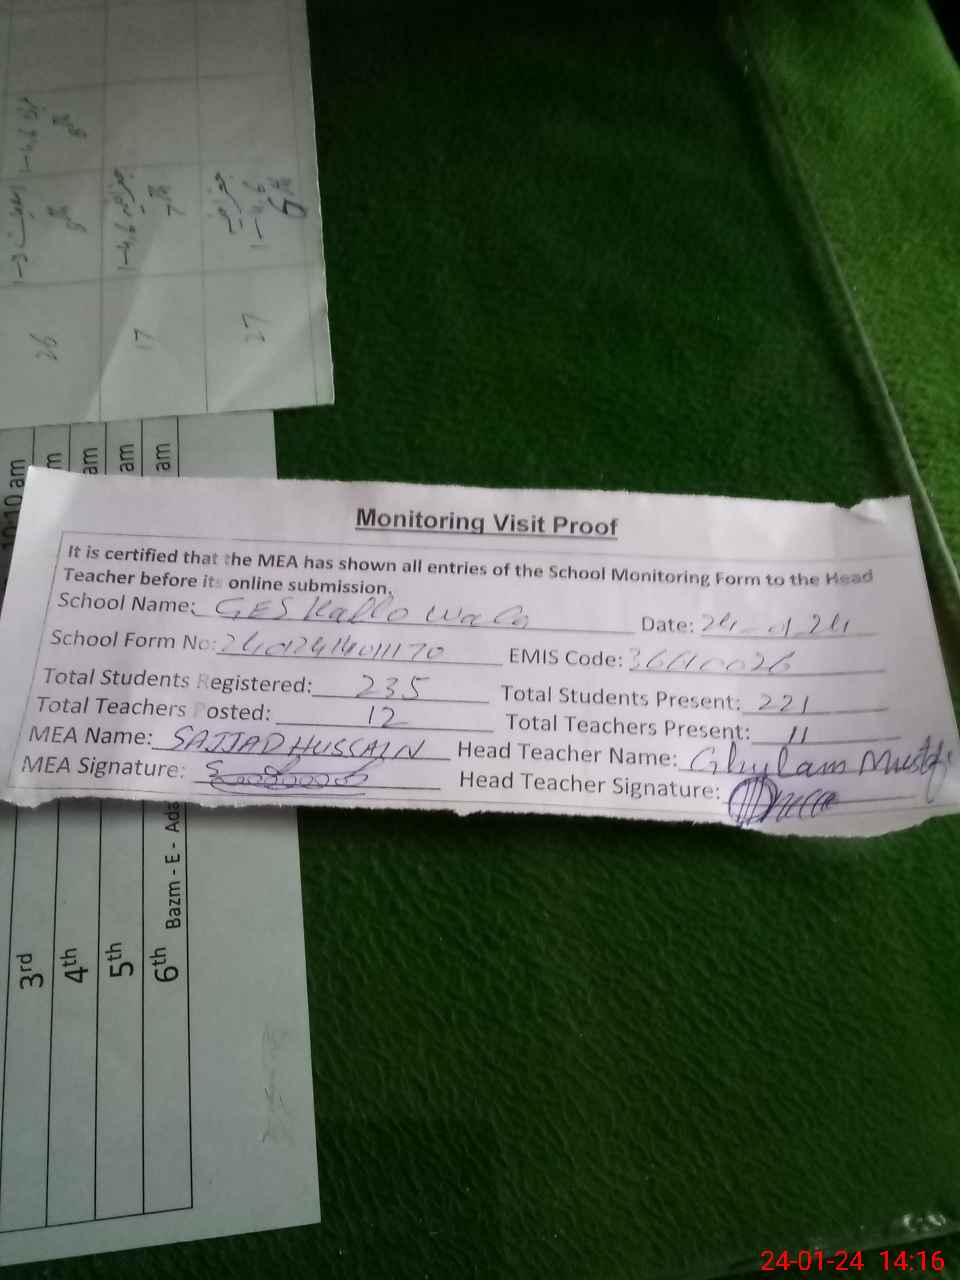 26
17
27
8th
7th
6th
10:10 am
am
am
am
Monitoring Visit Proof
It is certified that the MEA has shown all entries of the School Monitoring Form to the Head
Teacher before its online submission.
School Name: GES Kallo Wala Date: 24-01-24
School Form No: EMIS Code: 36610026
Total Students Registered: 235 Total Students Present: 221
Total Teachers Posted: 12 Total Teachers Present: 11
MEA Name: SAJJAD HUSSAIN Head Teacher Name: Ghulam Mustf
MEA Signature: Head Teacher Signature:
3rd
4th
5th
6th Bazm - E - Ad
24-01-24 14:16